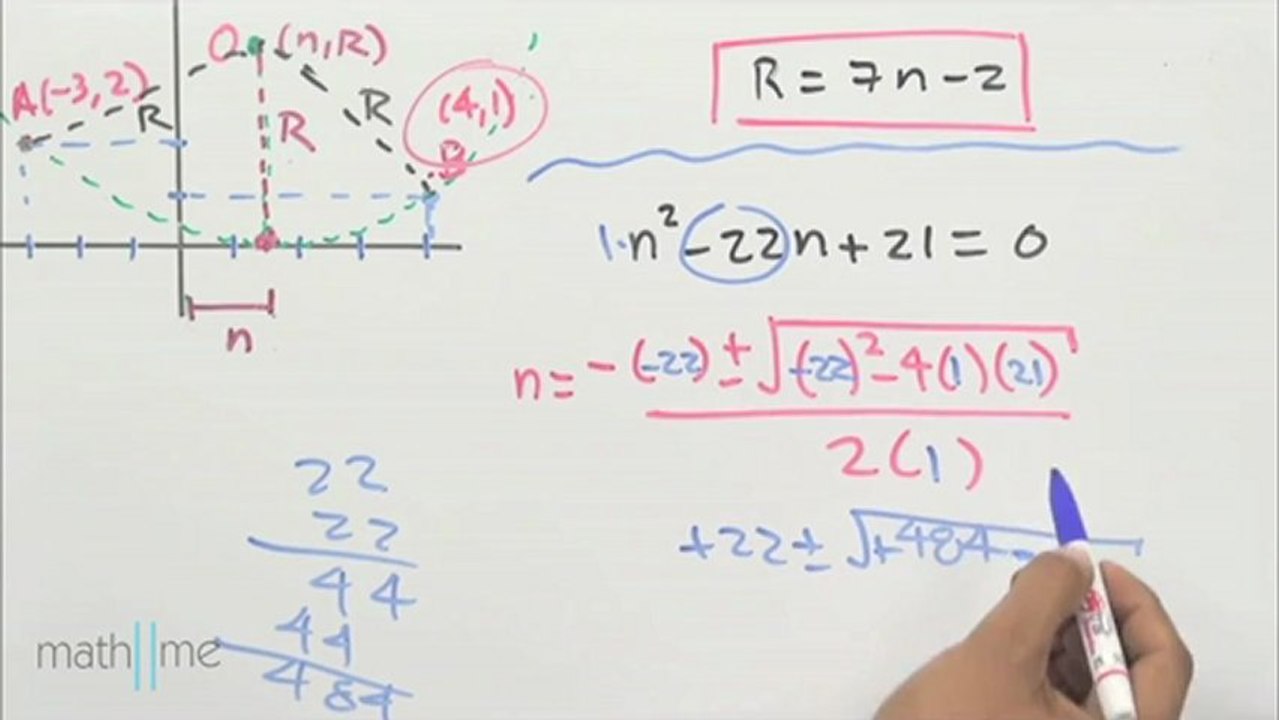 O (n,R)
A(-3,2)
R
R
R
(4,1)
B
n
R = 7n-2
1·n²-22n+21=0
n = -(-22)±√(-22)²-4(1)(21)
2(1)
+22±√+484-
22
22
44
44
484
math||me